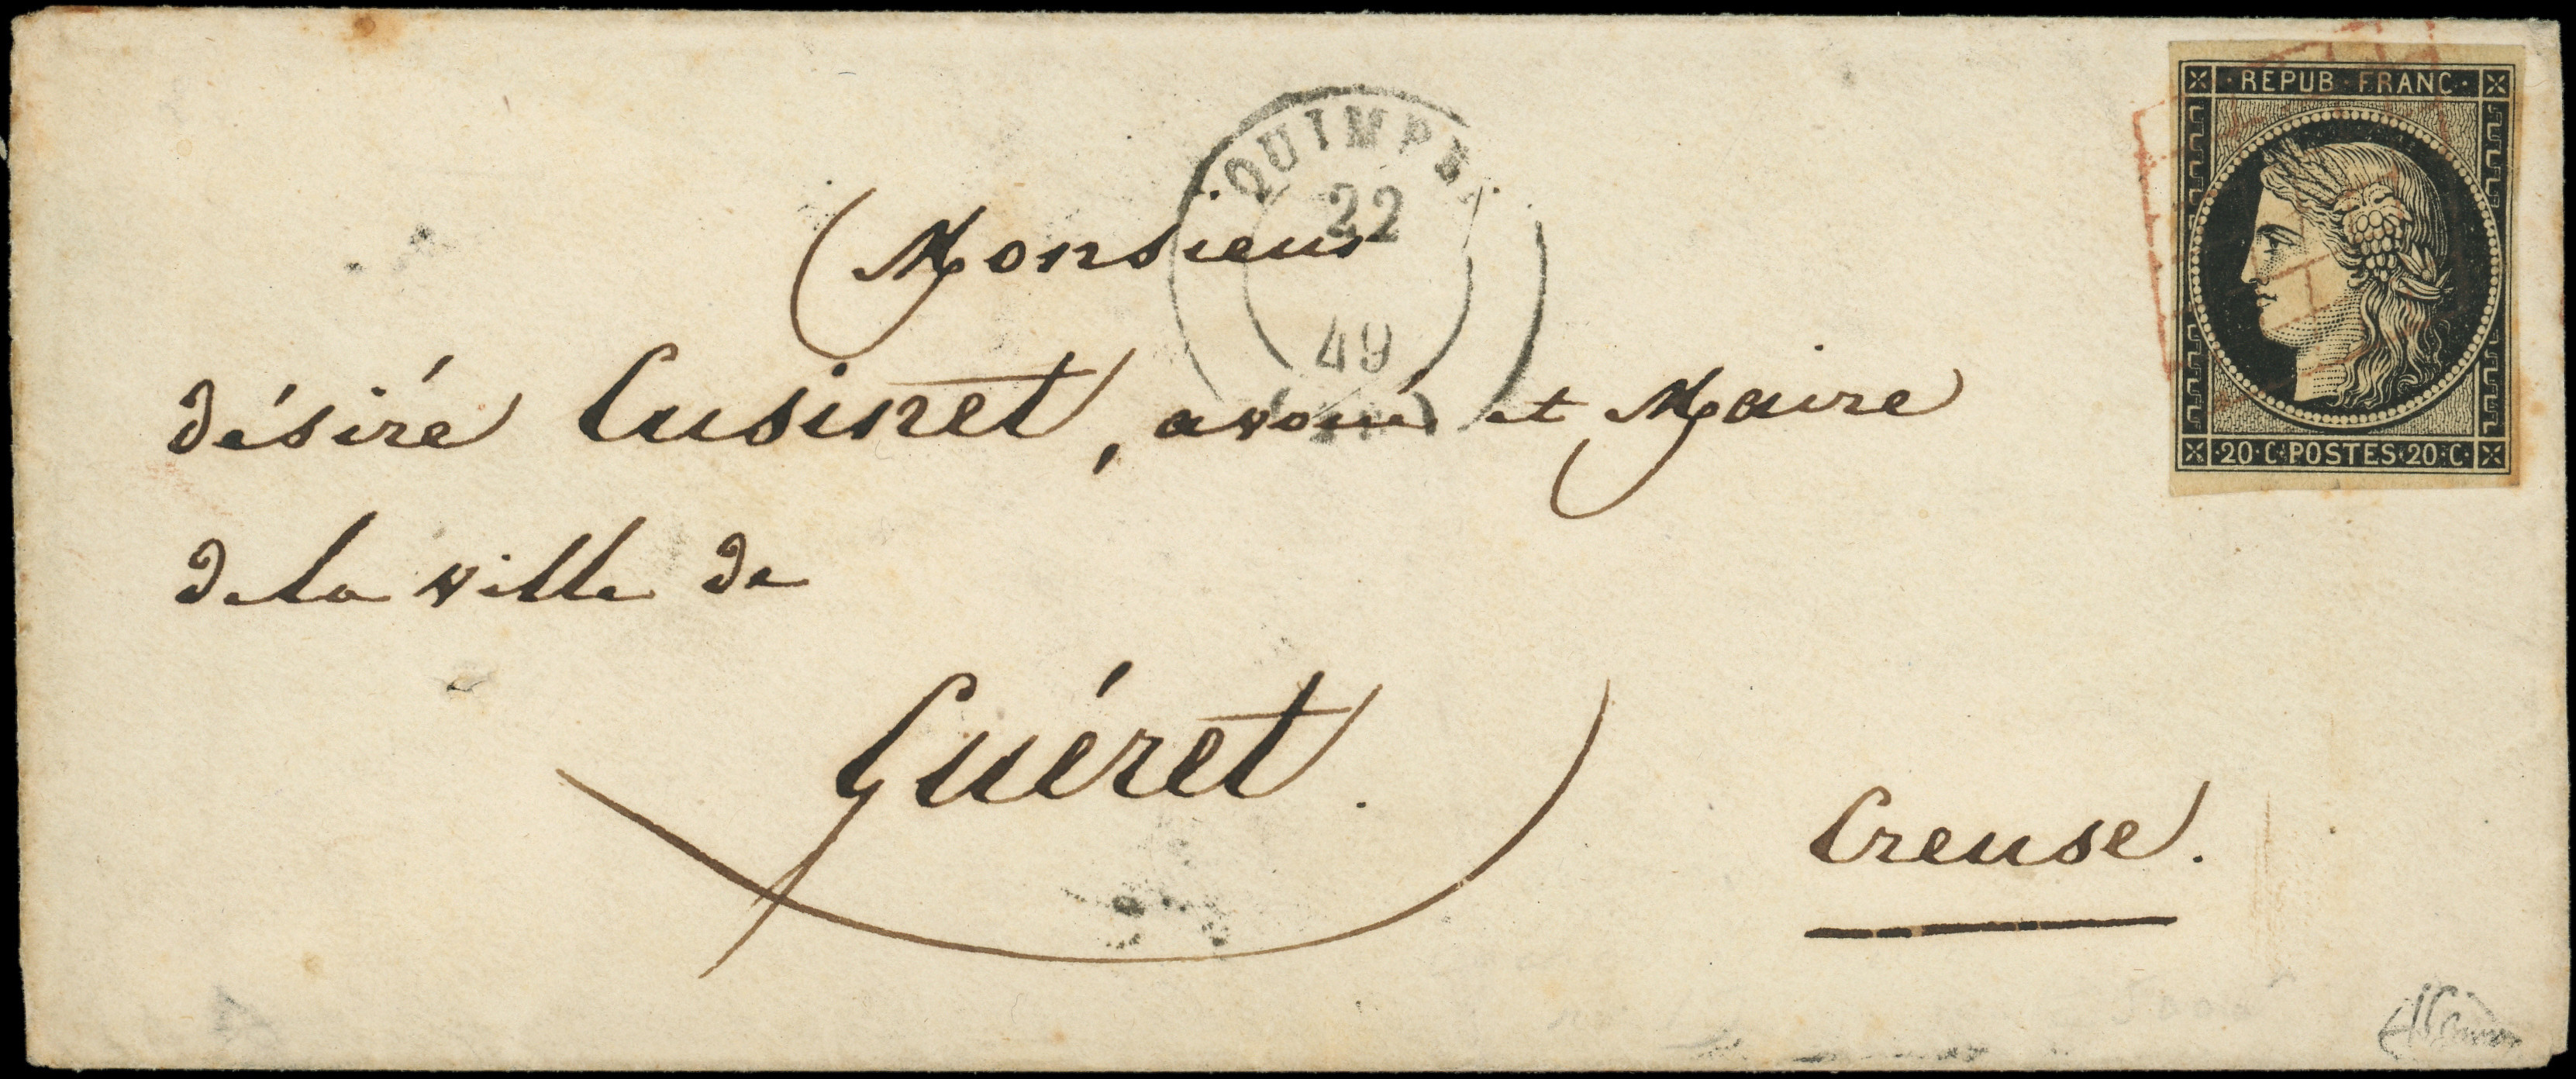 REPUB FRANC
QUIMPER
22
49
Monsieur
désiré Cusinet, avoué et Maire
de la ville de
Guéret.
Creuse.
20·C·POSTES·20·C